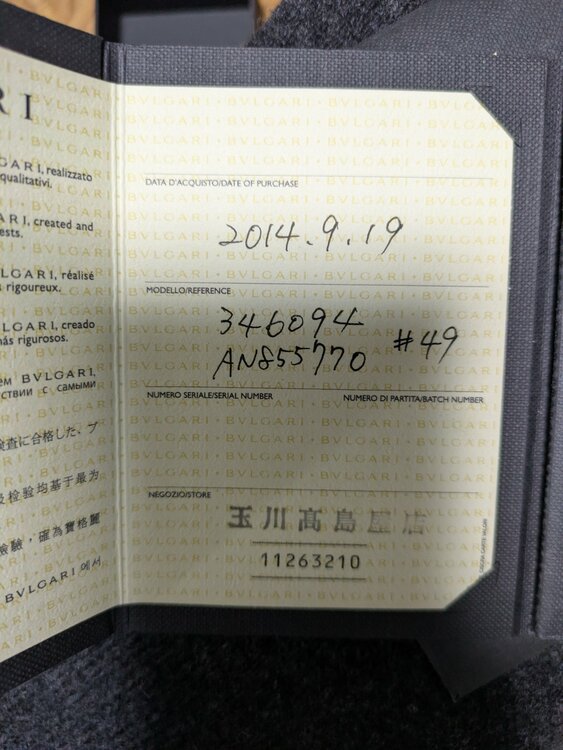 RI
GARI, realizzato
qualitativi.
ARI, created and
ests.
LGARI, réalisé
s rigoureux.
LGARI, creado
nás rigurosos.
ем BVLGARI,
тствии с самыми
検査に合格した、ブ
及检验均基于最为
檢驗，確為寶格麗
BVLGARI 에서
DATA D'ACQUISTO/DATE OF PURCHASE
2014.9.19
MODELLO/REFERENCE
346094
AN855770 #49
NUMERO SERIALE/SERIAL NUMBER
NUMERO DI PARTITA/BATCH NUMBER
NEGOZIO/STORE
玉川髙島屋店
11263210